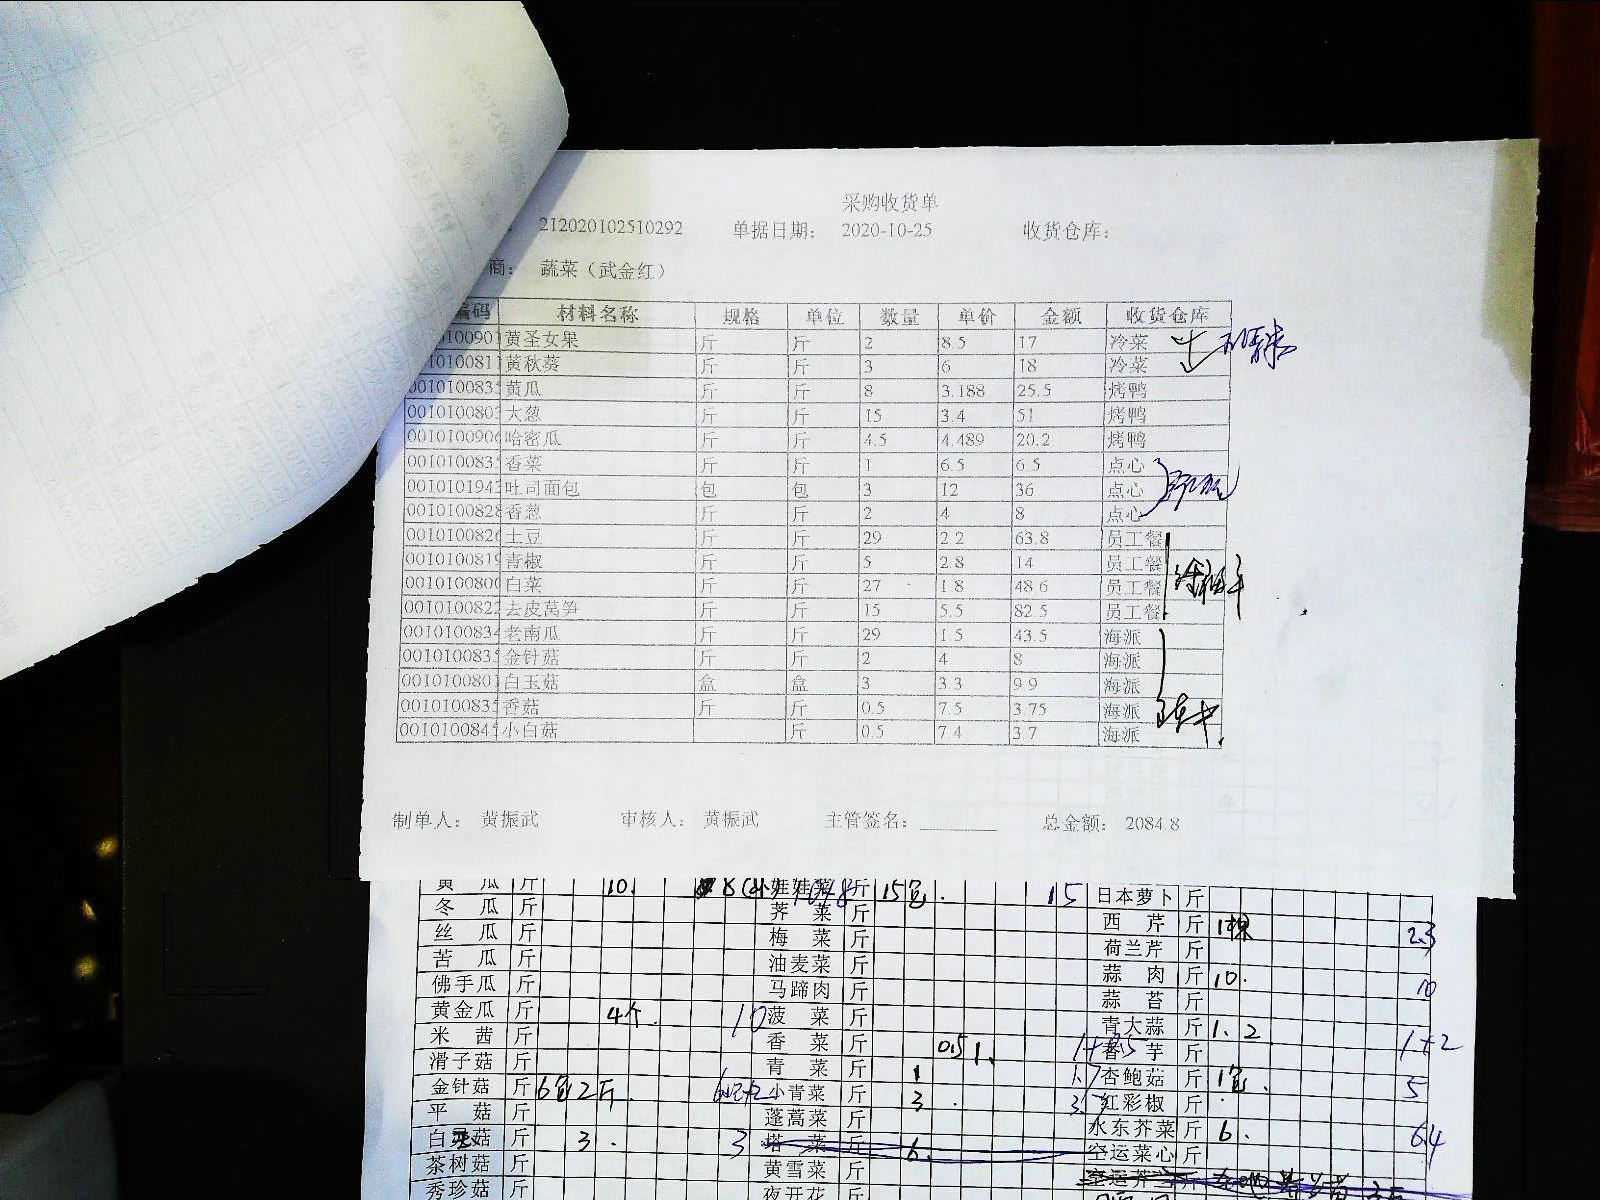 采购收货单
212020102510292 单据日期： 2020-10-25 收货仓库：
商： 蔬菜（武金红）
编码 材料名称 规格 单位 数量 单价 金额 收货仓库
010090 黄圣女果 斤 斤 2 8.5 17 冷菜
0100811 黄秋葵 斤 斤 3 6 18 冷菜
001010083 黄瓜 斤 斤 8 3.188 25.5 烤鸭
001010080 大葱 斤 斤 15 3.4 51 烤鸭
001010090 哈密瓜 斤 斤 4.5 4.489 20.2 烤鸭
001010083 香菜 斤 斤 1 6.5 6.5 点心
001010194 吐司面包 包 包 3 12 36 点心
001010082 香葱 斤 斤 2 4 8 点心
001010082 土豆 斤 斤 29 2.2 63.8 员工餐
001010081 青椒 斤 斤 5 2.8 14 员工餐
001010080 白菜 斤 斤 27 1.8 48.6 员工餐
001010082 去皮莴笋 斤 斤 15 5.5 82.5 员工餐
001010083 老南瓜 斤 斤 29 1.5 43.5 海派
001010083 金针菇 斤 斤 2 4 8 海派
001010080 白玉菇 盒 盒 3 3.3 9.9 海派
001010083 香菇 斤 斤 0.5 7.5 3.75 海派
001010084 小白菇 斤 0.5 7.4 3.7 海派
制单人： 黄振武 审核人： 黄振武 主管签名：________ 总金额： 2084.8
黄瓜 斤 10. 娃娃菜 斤 15包. 15 日本萝卜 斤
冬瓜 斤 荠菜 斤 西芹 斤 1棵 2.3
丝瓜 斤 梅菜 斤 荷兰芹 斤
苦瓜 斤 油麦菜 斤 蒜肉 斤 10. 10
佛手瓜 斤 马蹄肉 斤 蒜苔 斤
黄金瓜 斤 4个. 10 菠菜 斤 青大蒜 斤 1. 2 1+2
米茜 斤 香菜 斤 0.5 1. 1+0.5 香芋 斤
滑子菇 斤 青菜 斤 1 1.7 杏鲍菇 斤 1包. 5
金针菇 斤 6包2斤. 6包+2 小青菜 斤 3. 3.7 红彩椒 斤
平菇 斤 蓬蒿菜 斤 水东芥菜 斤 6. 6.4
白灵菇 斤 3. 3 塔菜 斤 6. 空运菜心 斤
茶树菇 斤 黄雪菜 斤 空运芥 斤
秀珍菇 斤 夜开花 斤